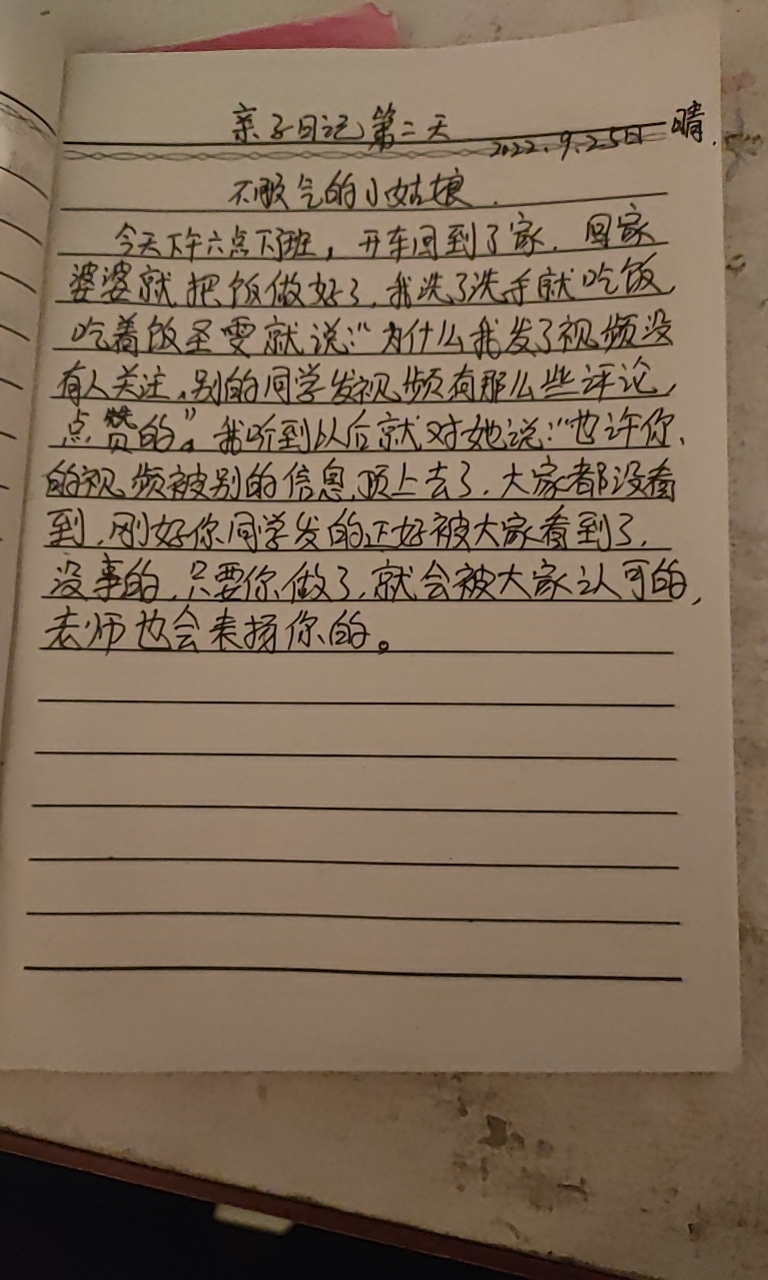 亲子日记第二天
2022.9.25日 晴.
不服气的小姑娘.
今天下午六点下班，开车回到了家.回家
婆婆就把饭做好了,我洗了洗手就吃饭,
吃着饭圣雯就说:“为什么我发了视频没
有人关注,别的同学发视频有那么些评论,
点赞的”。我听到以后就对她说:“也许你
的视频被别的信息顶上去了.大家都没看
到,刚好你同学发的还好被大家看到了.
没事的,只要你做了,就会被大家认可的,
老师也会表扬你的。